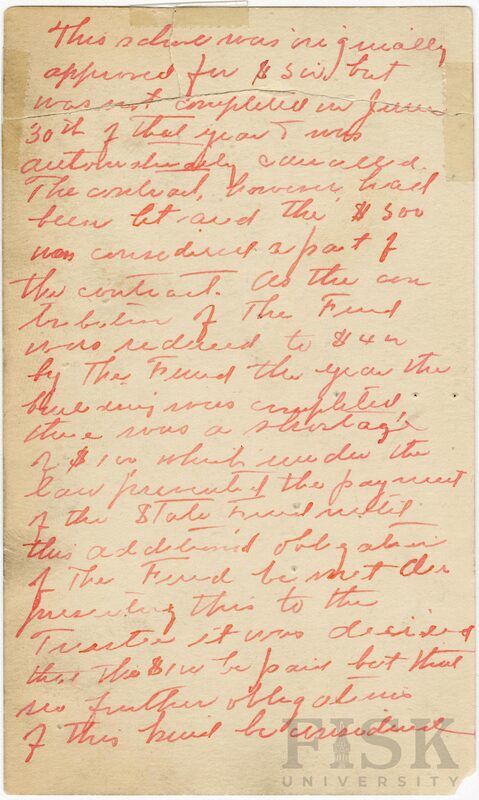 This school was originally
approved for $500 but
was not completed in June
30th of that year & was
automatically cancelled.
The contract, however, had
been let and the $500
was considered a part of
the contract. As the con
tribution of The Fund
was reduced to $400
by The Fund the year the
building was completed,
there was a shortage
of $100 which under the
law prevented the payment
of the State Fund until
this additional obligation
of The Fund be met. On
presenting this to the
Trustee it was decided
that the $100 be paid but that
no further obligations
of this kind be considered
FISK
UNIVERSITY